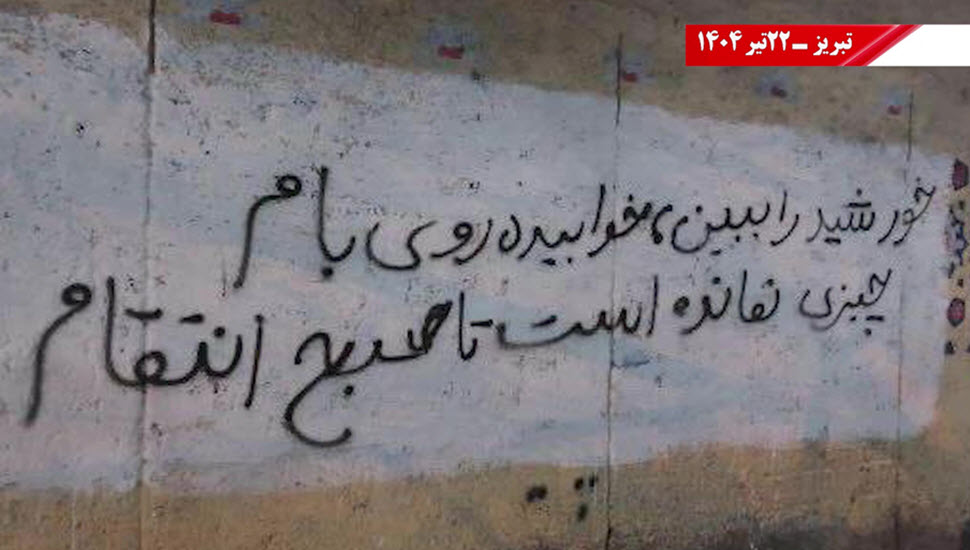 تبریز ــ ۲۲تیر ۱۴۰۴
خورشید را ببین، خوابیده روی بام
چیزی نمانده است تا صبح انتقام